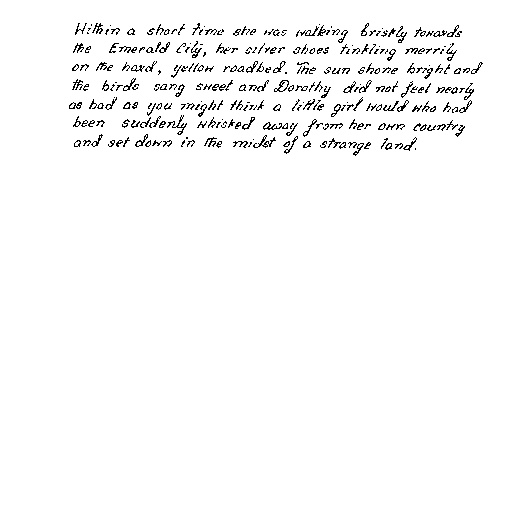 Within a short time she was walking briskly towards
the Emerald City, her silver shoes tinkling merrily
on the hard, yellow roadbed. The sun shone bright and
the birds sang sweet and Dorothy did not feel nearly
as bad as you might think a little girl would who had
been suddenly whisked away from her own country
and set down in the midst of a strange land.